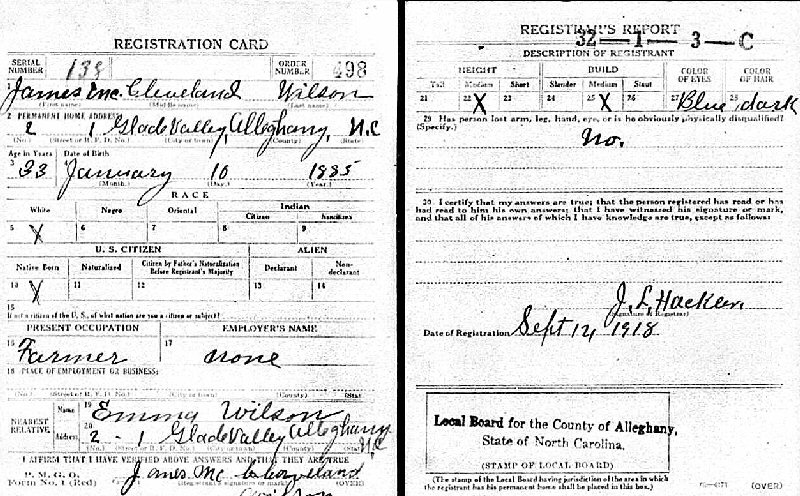 REGISTRATION CARD
SERIAL NUMBER 138 ORDER NUMBER 498
1 James Mc. Cleveland Wilson
(First name) (Middle name) (Last name)
2 PERMANENT HOME ADDRESS
2 1 Glade Valley, Alleghany, N.C
(No.) (Street or R. F. D. No.) (City or town) (County) (State)
Age in Years Date of Birth
3 33 4 January 10 1885
(Month.) (Day.) (Year.)
RACE
White Negro Oriental Indian
Citizen Noncitizen
5 X 6 7 8 9
U. S. CITIZEN ALIEN
Native Born Naturalized Citizen by Father's Naturalization Before Registrant's Majority Declarant Non-declarant
10 X 11 12 13 14
15
If not a citizen of the U. S., of what nation are you a citizen or subject?
PRESENT OCCUPATION EMPLOYER'S NAME
16 Farmer 17 none
18 PLACE OF EMPLOYMENT OR BUSINESS:
(No.) (Street or R. F. D. No.) (City or town) (County) (State)
NEAREST RELATIVE Name 19 Emma Wilson
Address 20 2 - 1 Glade Valley Alleghany N.C
(No.) (Street or R. F. D. No.) (City or town) (County) (State)
I AFFIRM THAT I HAVE VERIFIED ABOVE ANSWERS AND THAT THEY ARE TRUE
P. M. G. O.
Form No. 1 (Red) James Mc Cleveland Wilson
(Registrant's signature or mark) (OVER)
REGISTRAR'S REPORT
32—1—3—C
DESCRIPTION OF REGISTRANT
HEIGHT BUILD COLOR OF EYES COLOR OF HAIR
Tall Medium Short Slender Medium Stout
21 22 X 23 24 25 X 26 27 Blue 28 dark
29 Has person lost arm, leg, hand, eye, or is he obviously physically disqualified?
(Specify.)
No.
30 I certify that my answers are true; that the person registered has read or has
had read to him his own answers; that I have witnessed his signature or mark,
and that all of his answers of which I have knowledge are true, except as follows:
J. L.
(Signature of Registrar)
Date of Registration Sept 12 1918
Local Board for the County of Alleghany,
State of North Carolina.
(STAMP OF LOCAL BOARD)
(The stamp of the Local Board having jurisdiction of the area in which
the registrant has his permanent home shall be placed in this box.)
(OVER)